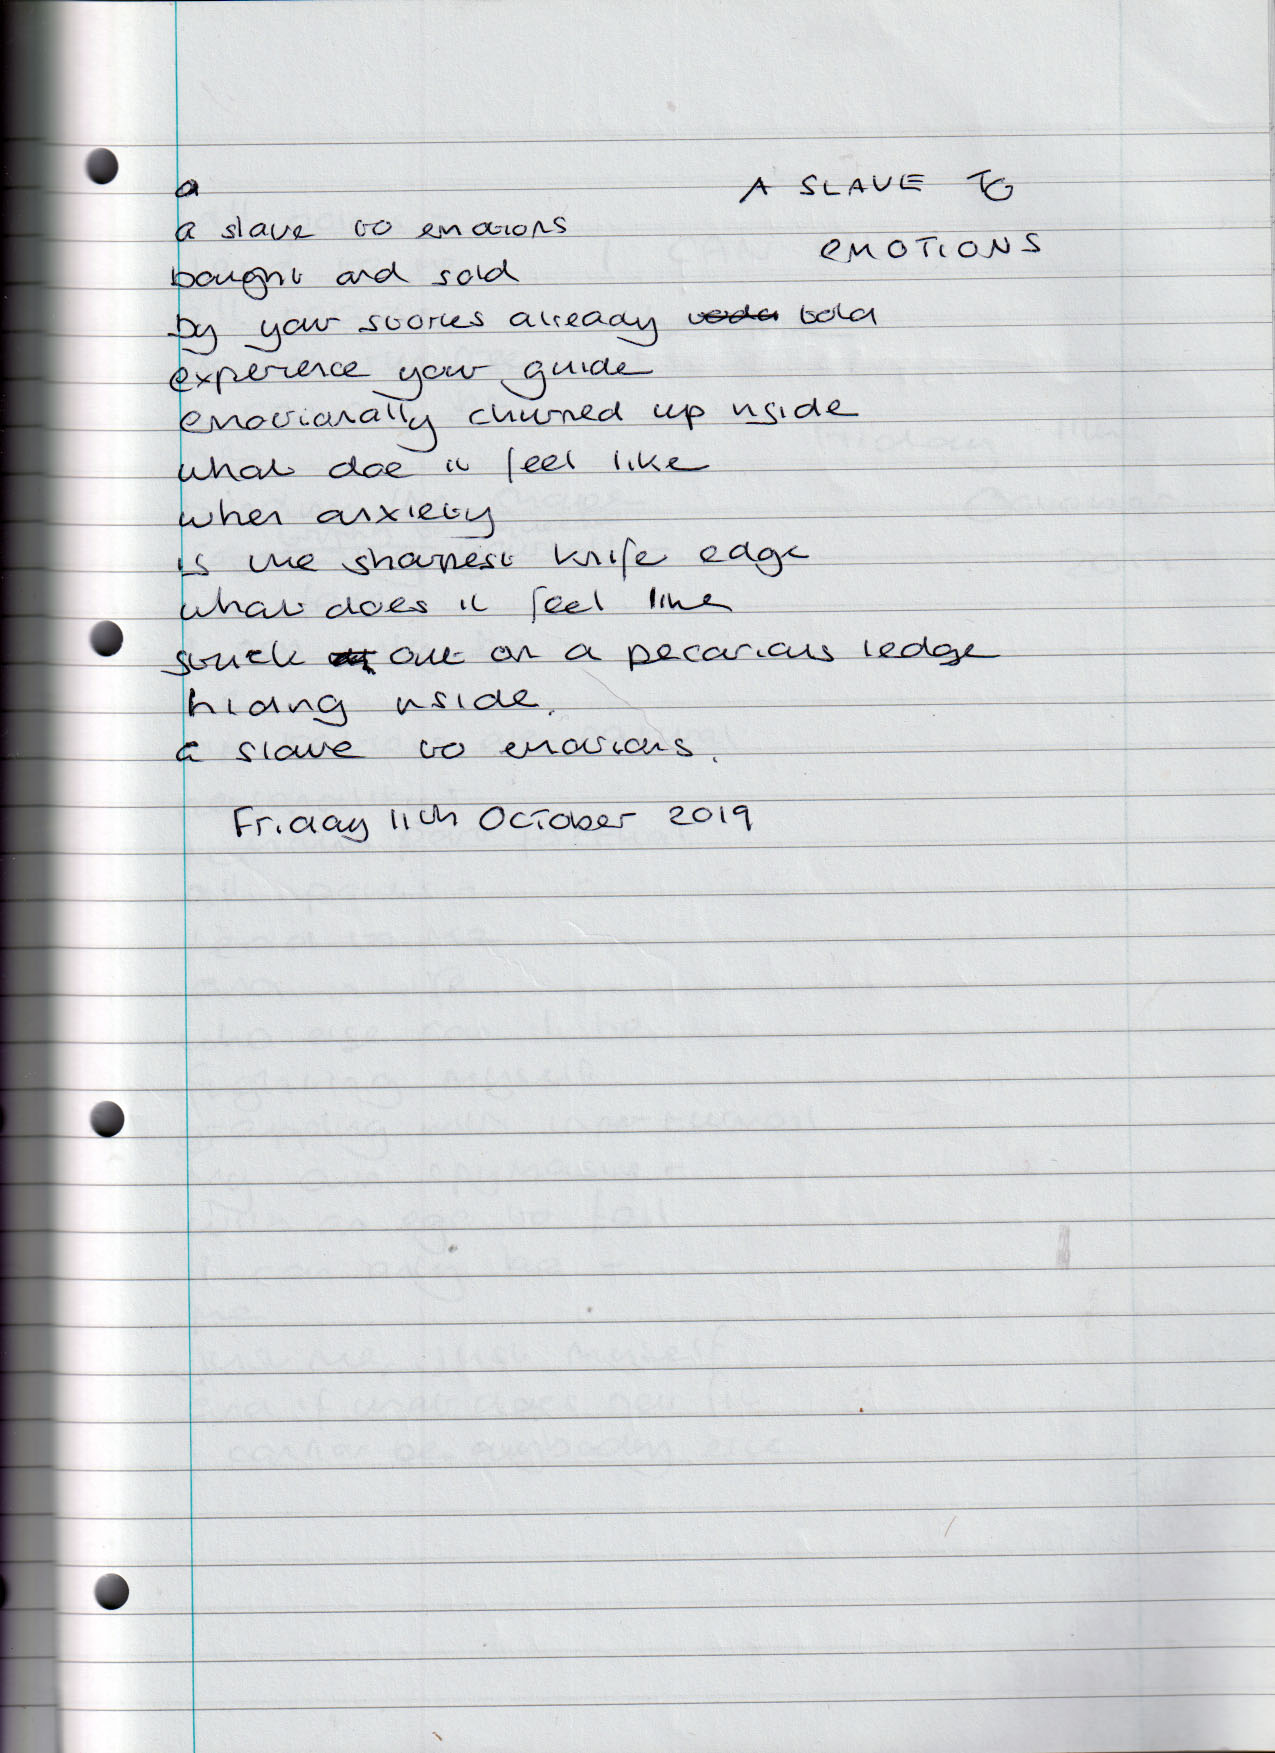 a
A SLAVE TO
EMOTIONS
a slave to emotions
bought and sold
by your stories already told
experience your guide
emotionally churned up inside
what doe it feel like
when anxiety
is the sharpest knife edge
what does it feel like
stuck out on a pecarious ledge
hiding inside.
a slave to emotions.
Friday 11th October 2019